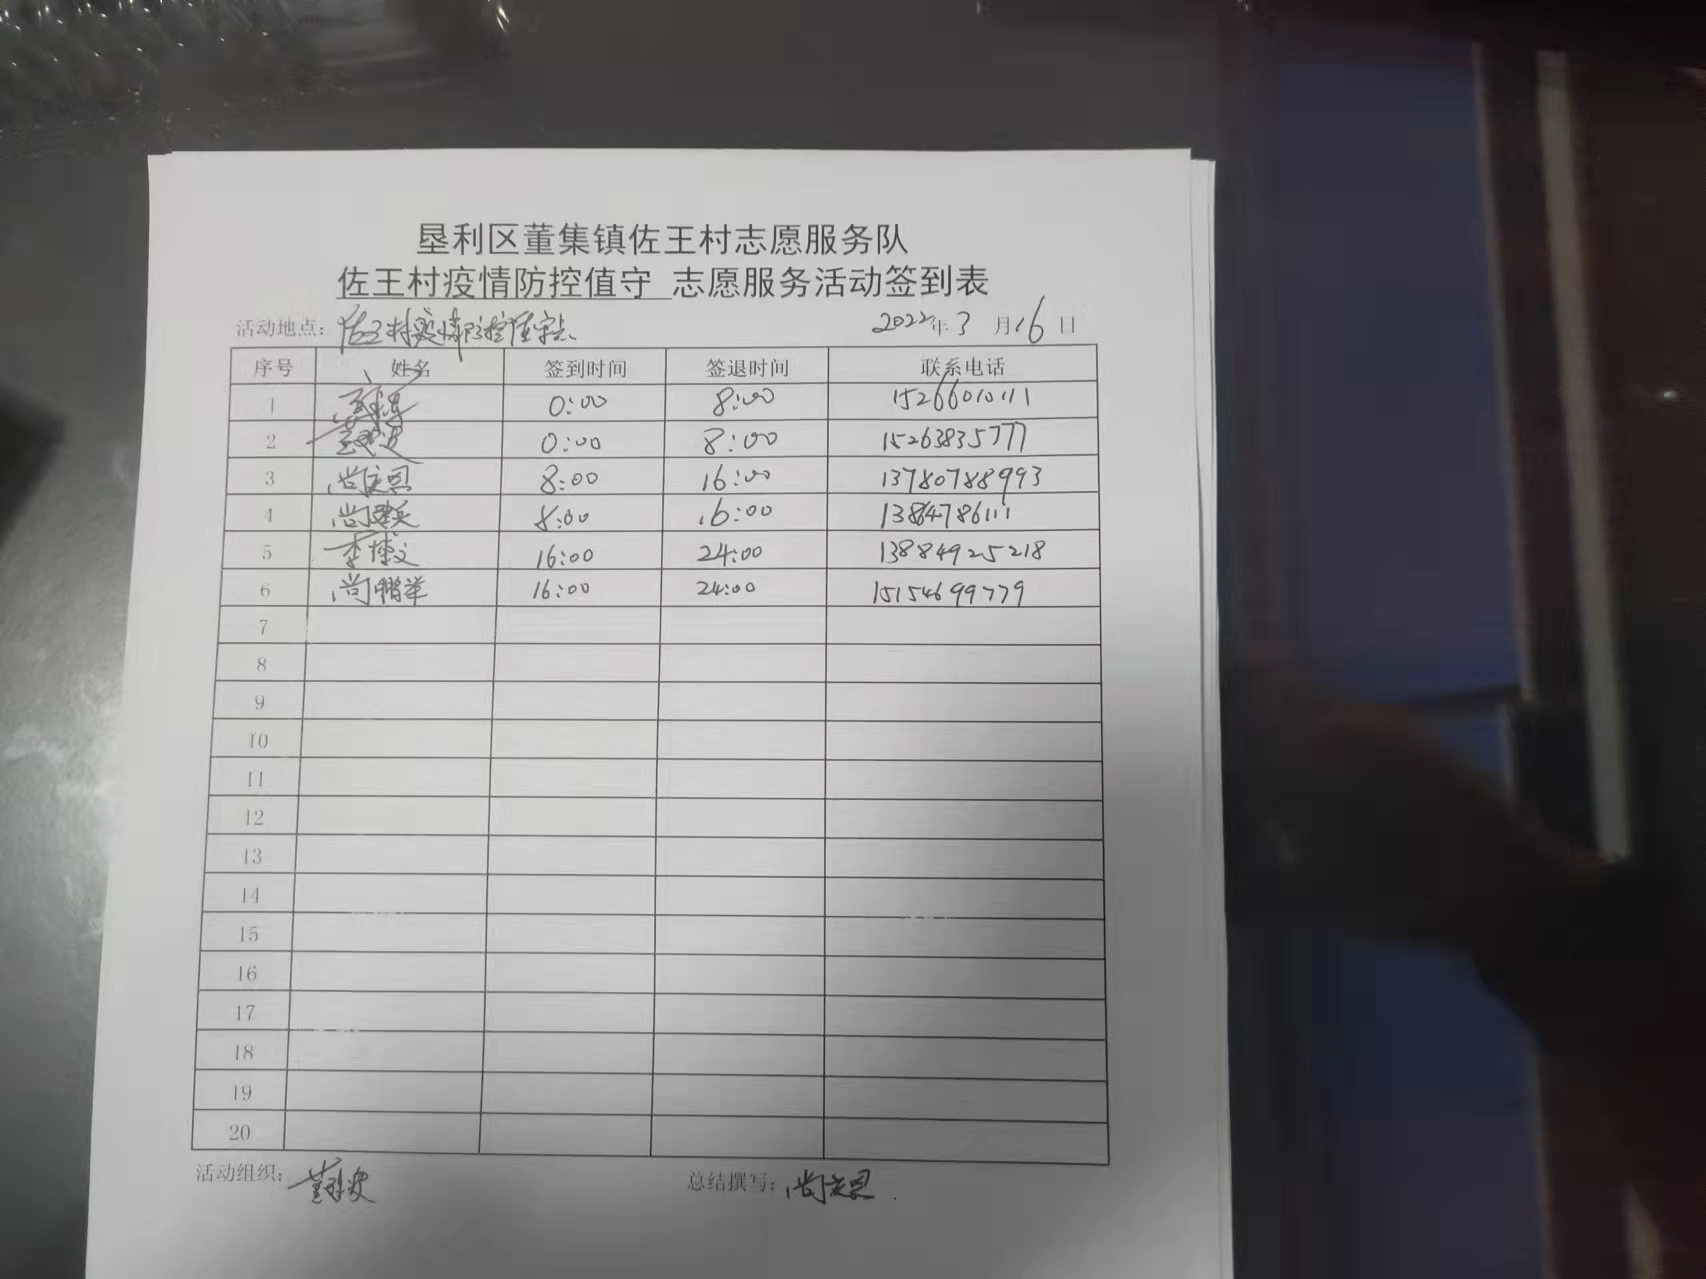 垦利区董集镇佐王村志愿服务队
佐王村疫情防控值守 志愿服务活动签到表
活动地点：佐王村疫情防控值守点 2022年3月16日
序号 姓名 签到时间 签退时间 联系电话
1 0:00 8:00 15266010111
2 0:00 8:00 15263835777
3 尚 8:00 16:00 13780788993
4 尚 8:00 16:00 13864786111
5 李博文 16:00 24:00 13884925218
6 尚鹏举 16:00 24:00 15154699779
7
8
9
10
11
12
13
14
15
16
17
18
19
20
活动组织： 总结撰写：尚